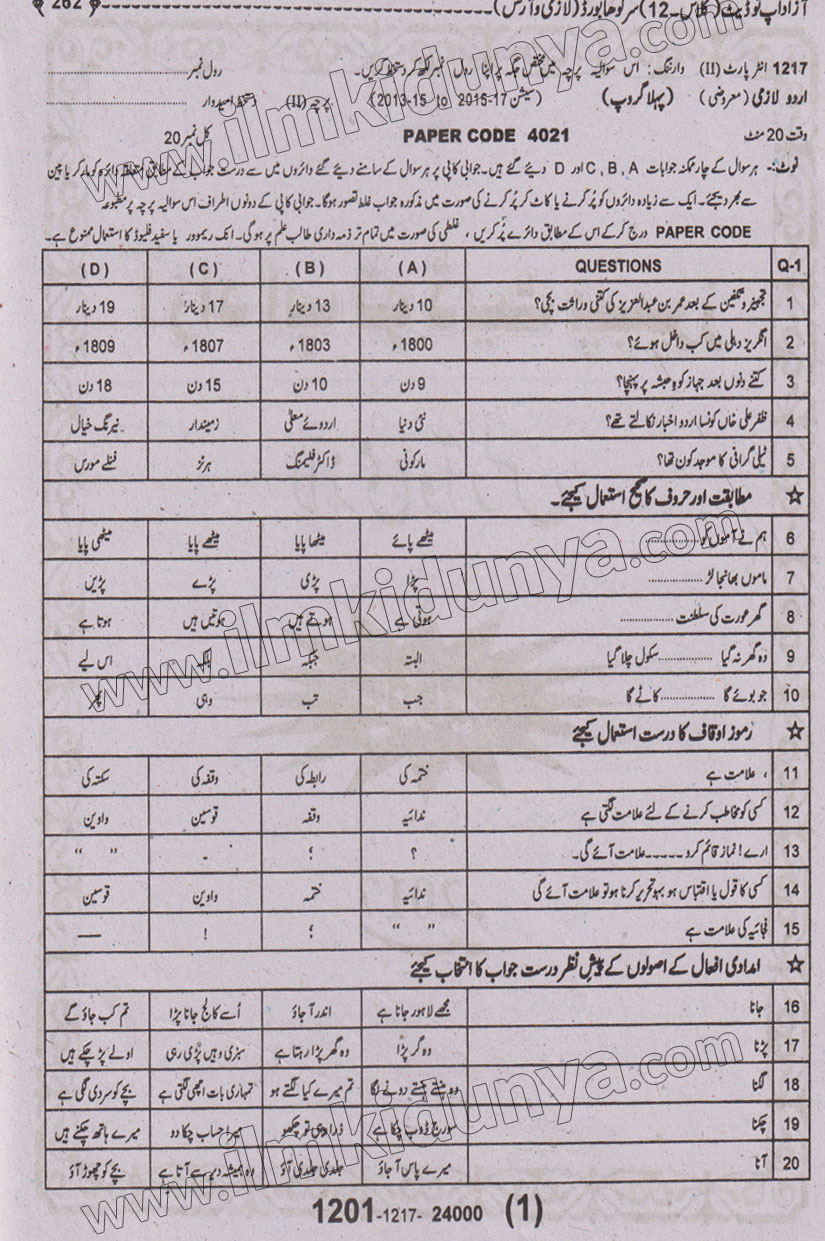 آزاد اپ ٹو ڈیٹ (کلاس۔12) سرگودھا بورڈ (لازمی و آرٹس) 262
1217 انٹر پارٹ (II) وارننگ: اس سوالیہ پرچہ میں مختص جگہ پر اپنا رول نمبر لکھ کر دستخط کریں۔ رول نمبر
اردو لازمی (معروضی) (پہلا گروپ) (سیشن 17-2015 to 2013-15) پرچہ (II) دستخط امیدوار
وقت 20 منٹ PAPER CODE 4021 کل نمبر 20
نوٹ:۔ ہر سوال کے چار ممکنہ جوابات C , B , A اور D دیئے گئے ہیں۔ جوابی کاپی پر ہر سوال کے سامنے دیئے گئے دائروں میں سے درست جواب کے مطابق متعلقہ دائرہ کو مارکر یا پین
سے بھر دیجئے۔ ایک سے زیادہ دائروں کو پُر کرنے یا کاٹ کر پُر کرنے کی صورت میں مذکورہ جواب غلط تصور ہوگا۔ جوابی کاپی کے دونوں اطراف اس سوالیہ پرچہ پر مطبوعہ
PAPER CODE درج کر کے اس کے مطابق دائرے پُر کریں ، غلطی کی صورت میں تمام تر ذمہ داری طالب علم پر ہوگی۔ انک ریموور یا سفید فلیوڈ کا استعمال ممنوع ہے۔
Q-1 QUESTIONS (A) (B) (C) (D)
1 تجہیز و تکفین کے بعد عمر بن عبدالعزیز کی کتنی وراثت بچی؟ 10 دینار 13 دینار 17 دینار 19 دینار
2 انگریز دہلی میں کب داخل ہوئے؟ 1800ء 1803ء 1807ء 1809ء
3 کتنے دنوں بعد جہاز کوہ حبشہ پر پہنچا؟ 9 دن 10 دن 15 دن 18 دن
4 ظفر علی خاں کونسا اردو اخبار نکالتے تھے؟ نئی دنیا اردوئے معلیٰ زمیندار نیرنگ خیال
5 ٹیلی گرافی کا موجد کون تھا؟ مارکونی ڈاکٹر فلیمنگ ہرٹز فنلے مورس
☆ مطابقت اور حروف کا صحیح استعمال کیجئے۔
6 ہم نے آموں کو ........ میٹھے پائے میٹھا پایا میٹھے پایا میٹھی پایا
7 ماموں بھانجا لڑ ........ پڑا پڑی پڑے پڑیں
8 گھر عورت کی سلطنت ........ ہوتی ہے ہوتے ہیں ہوتیں ہیں ہوتا ہے
9 وہ گھر نہ گیا ........ سکول چلا گیا البتہ جبکہ بلکہ اس لیے
10 جو بوئے گا ........ کاٹے گا جب تب وہی پھر
☆ رموز اوقاف کا درست استعمال کیجئے
11 ، علامت ہے ختمہ کی رابطہ کی وقفہ کی سکتہ کی
12 کسی کو مخاطب کرنے کے لئے علامت لگتی ہے ندائیہ وقفہ قوسین واوین
13 ارے! نماز قائم کرو ----- علامت آئے گی۔ ؟ ؛ ۔ “ ”
14 کسی کا قول یا اقتباس ہو بہو تحریر کرنا ہو تو علامت آئے گی ندائیہ ختمہ واوین قوسین
15 فجائیہ کی علامت ہے “ ” ؛ ! —
☆ امدادی افعال کے اصولوں کے پیشِ نظر درست جواب کا انتخاب کیجئے
16 جانا مجھے لاہور جانا ہے اندر آ جاؤ اُسے کالج جانا پڑا تم کب جاؤ گے
17 پڑنا وہ گر پڑا وہ گھر پڑا رہتا ہے سبزی وہیں پڑی رہی اولے پڑ چکے ہیں
18 لگنا وہ ہنستے ہنستے رونے لگا تم میرے کیا لگتے ہو تمہاری بات اچھی لگتی ہے بچے کو سردی لگی ہے
19 چکنا سورج ڈوب چکا ہے ذرا دہی تو چکھو میرا حساب چکا دو میرے ہاتھ چکنے ہیں
20 آنا میرے پاس آ جاؤ جلدی جلدی آؤ وہ ہمیشہ دیر سے آتا ہے بچے کو چھوڑ آؤ
1201-1217- 24000 (1)
www.ilmkidunya.com
www.ilmkidunya.com
www.ilmkidunya.com
www.ilmkidunya.com